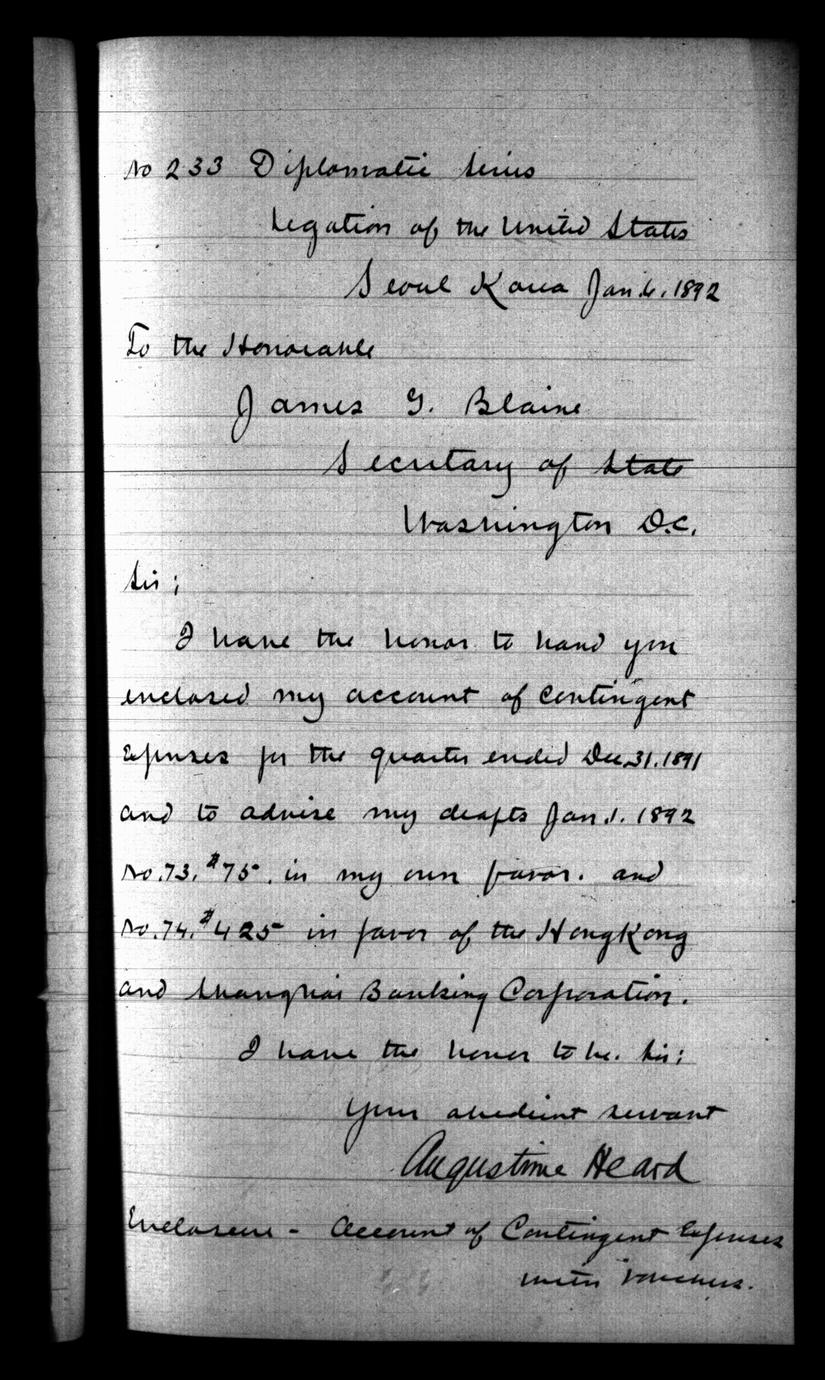 No 233 Diplomatic Series
Legation of the United States
Seoul Korea Jan. 6. 1892
To the Honorable
James G. Blaine
Secretary of State
Washington D.C.
Sir;
I have the honor to hand you
enclosed my account of Contingent
Expenses for the quarter ended Dec. 31. 1891
and to advise my drafts Jan. 1. 1892
No. 73. $75. in my own favor. and
No. 74. $425 in favor of the HongKong
and Shanghai Banking Corporation.
I have the honor to be. Sir;
Your obedient servant
Augustine Heard
Enclosure - Account of Contingent Expenses
with vouchers.